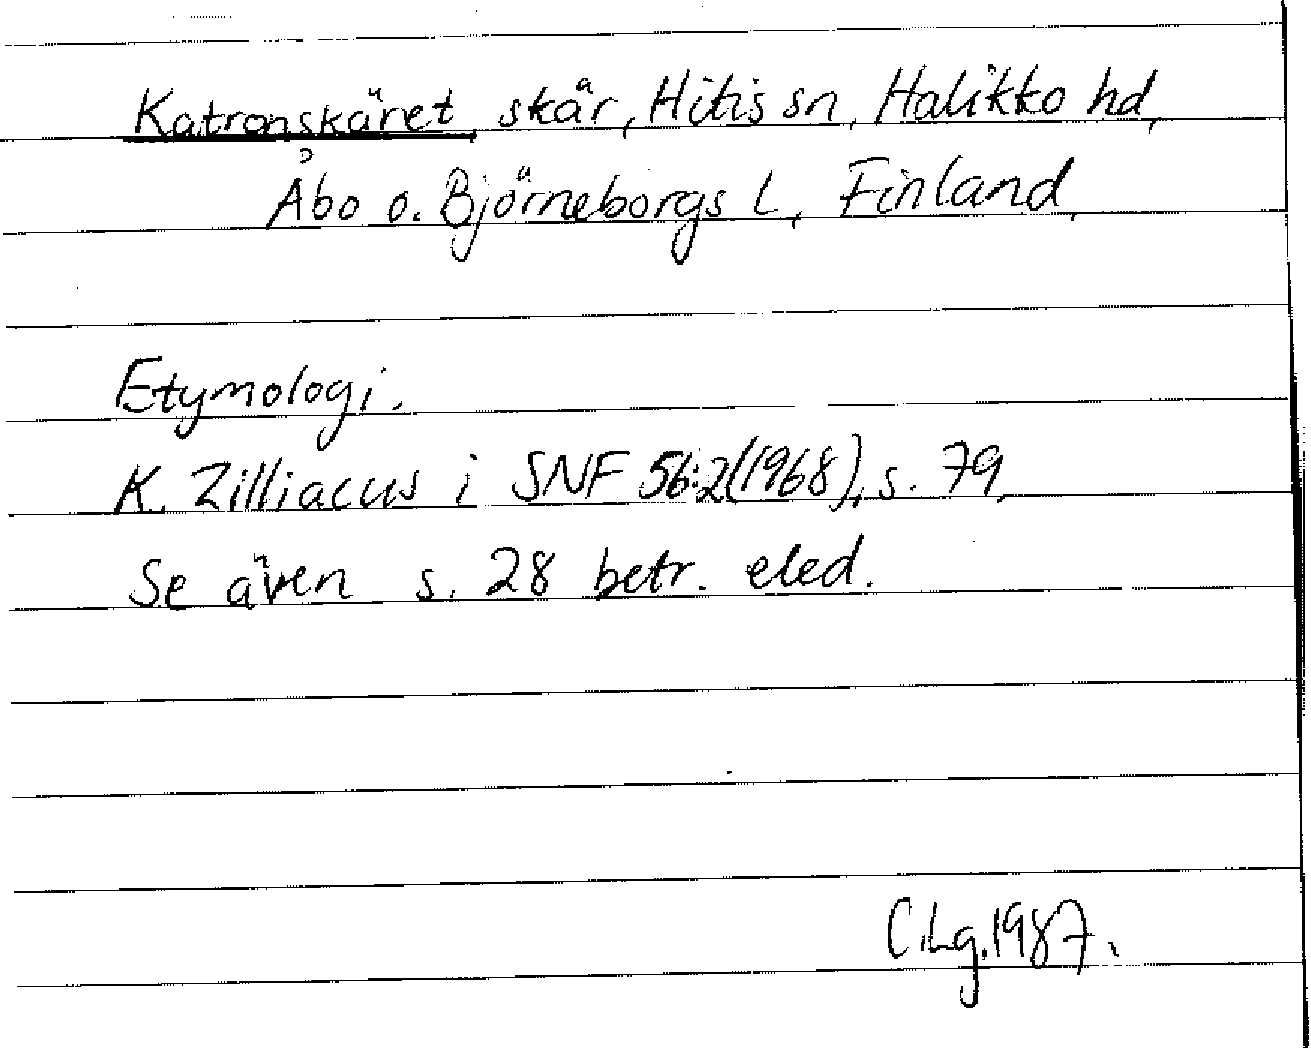 Katronskäret, skär, Hitis sn, Halikko hd,
Åbo o. Björneborgs L, Finland,
Etymologi.
K. Zilliacus i SNF 56:2(1968), s. 79,
Se även s. 28 betr. eled.
C.Lg.1987.